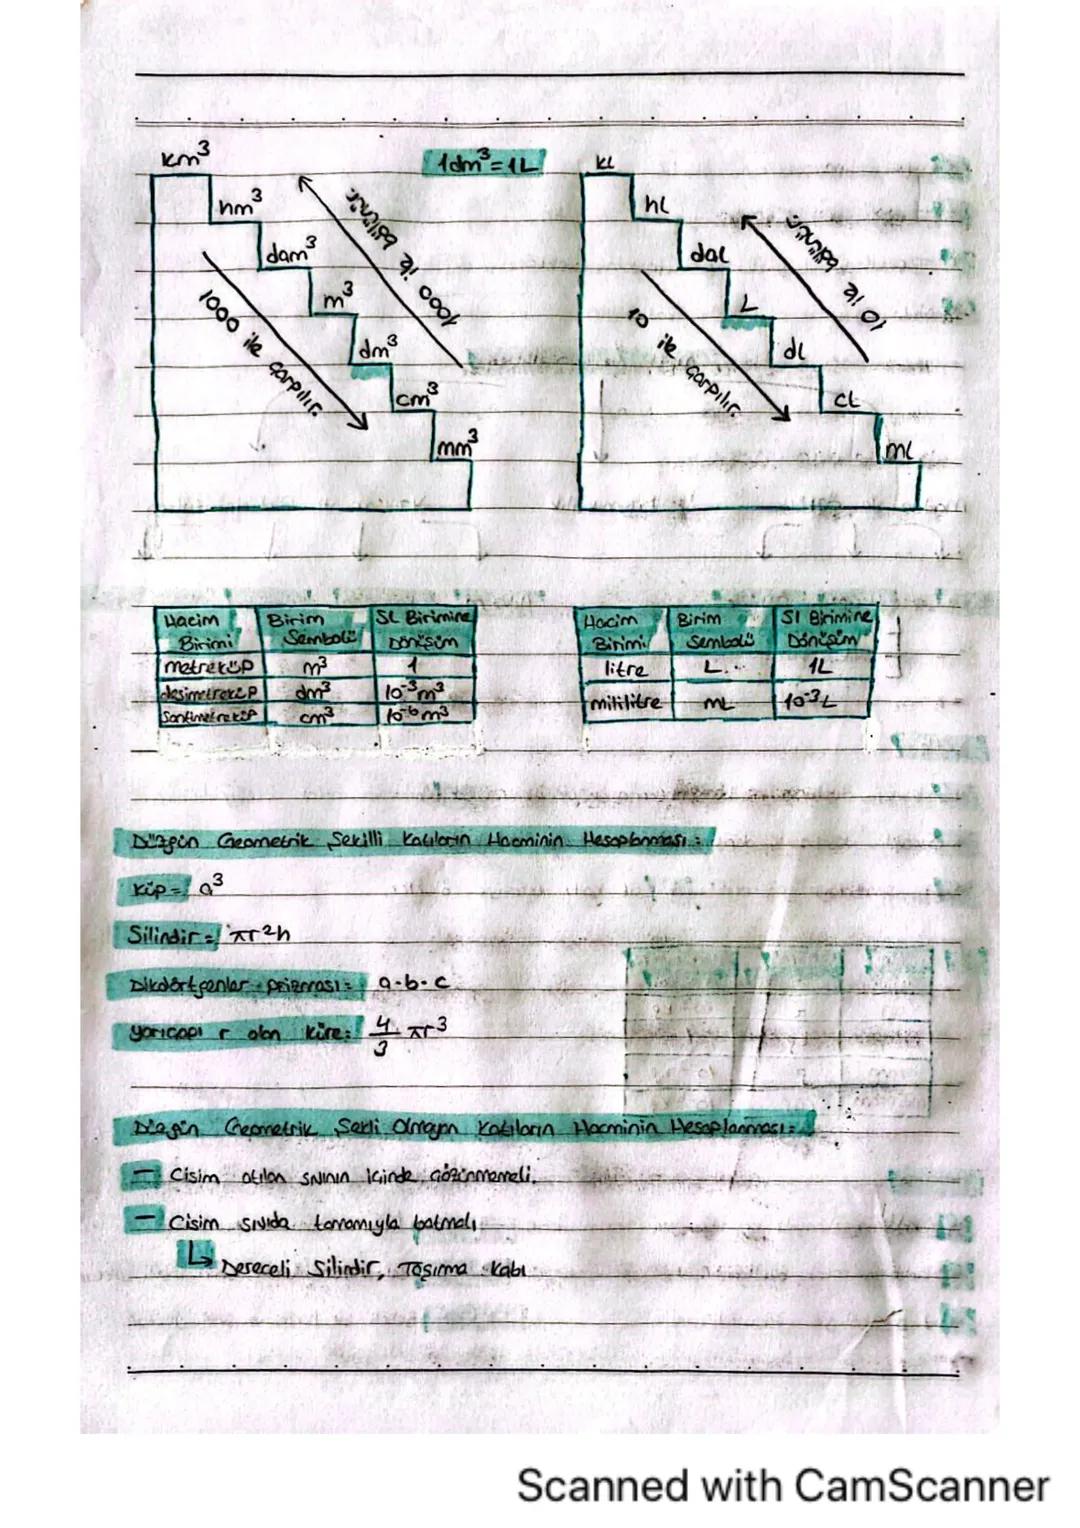 km³
hm³
dam³
m³
dm³
cm³
mm³
1000 ile çarpılır.
1000 ile bölünür.
1dm³=1L
kL
hL
daL
L
dL
cL
mL
10 ile çarpılır.
10 ile bölünür.
Hacim Birimi | Birim Sembolü | SI Birimine Dönüşüm
metreküp | m³ | 1
desimetreküp | dm³ | 10⁻³m³
Santimetreküp | cm³ | 10⁻⁶m³
Hacim Birimi | Birim Sembolü | SI Birimine Dönüşüm
litre | L | 1L
mililitre | mL | 10⁻³L
Düzgün Geometrik Şekilli Katıların Hacminin Hesaplanması:
Küp = a³
Silindir = πr²h
Dikdörtgenler prizması = a.b.c
Yarıçapı r olan küre: 4/3 πr³
Düzgün Geometrik Şekli Olmayan Katıların Hacminin Hesaplanması:
— Cisim atılan sıvının içinde çözünmemeli.
— Cisim sıvıda tamamıyla batmalı
↳ Dereceli Silindir, Taşırma Kabı
Scanned with CamScanner